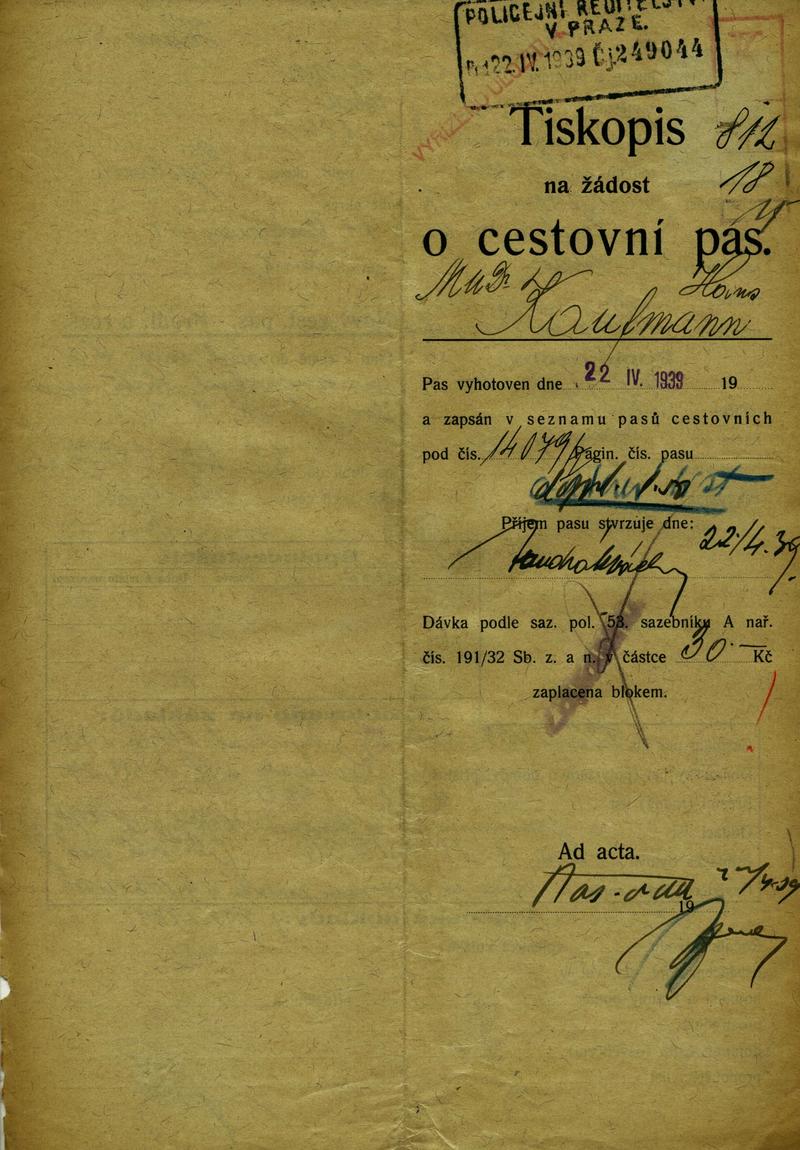 POLICEJNÍ ŘEDITELSTVÍ
V PRAZE.
22.IV.1939 Čj. 249044
Tiskopis 812
na žádost 18
o cestovní pas.
MUDr Hans
Kaufmann
Pas vyhotoven dne 22 IV. 1939 19
a zapsán v seznamu pasů cestovních
pod čís. 14079/ pagin. čís. pasu
Příjem pasu stvrzuje dne: 22/4.39
Dávka podle saz. pol. 53. sazebníku A nař.
čís. 191/32 Sb. z. a n. v částce 30.— Kč
zaplacena blokem.
Ad acta.
19